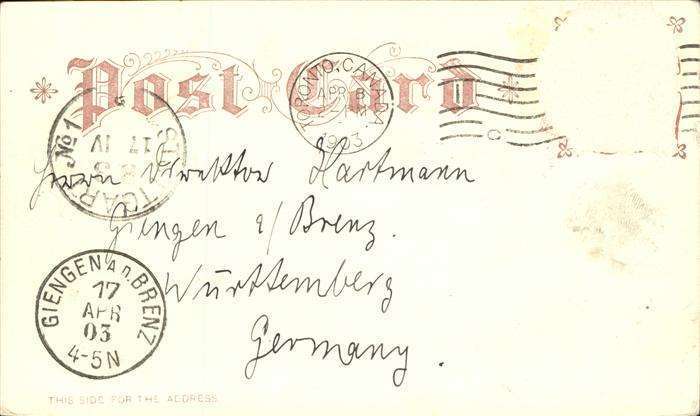 Post Card
TORONTO, CANADA.
APR 8
1903
C
STUTTGART No 1
17 IV
Herrn Direktor Hartmann
Giengen a/Brenz.
Württemberg
Germany.
GIENGEN A.D. BRENZ
17
APR
03
4-5N
THIS SIDE FOR THE ADDRESS.